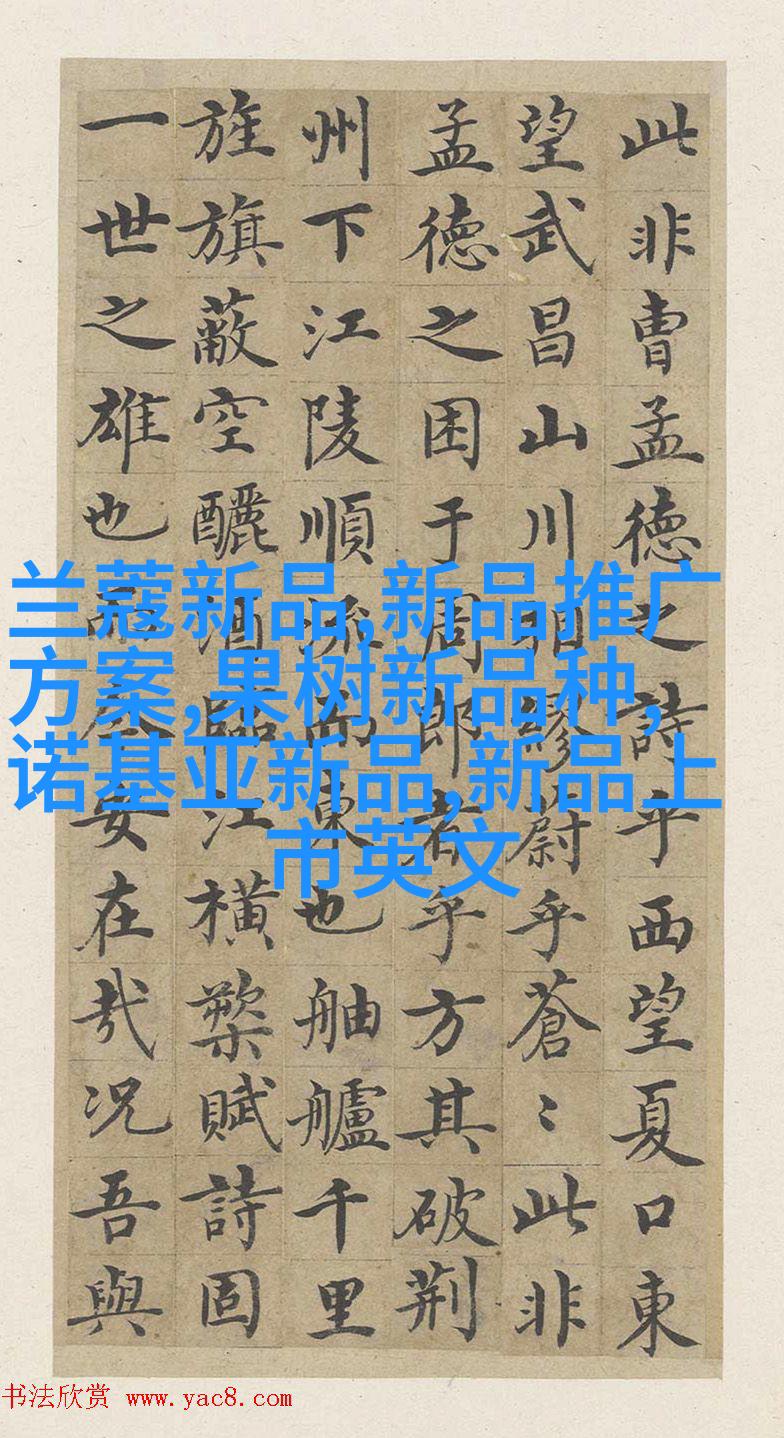 此非曹孟德之詩乎西望夏口東
望武昌山川相繆蔚乎蒼〻此非
孟德之困于周郎者乎方其破荆
州下江陵順流而東也舳艫千里
旌旗蔽空釃酒臨江横槊賦詩固
一世之雄也而今安在哉况吾與
兰蔻新品,新品推广
方案,果树新品种,
诺基亚新品,新品上
市英文
书法欣赏 www.yac8.com